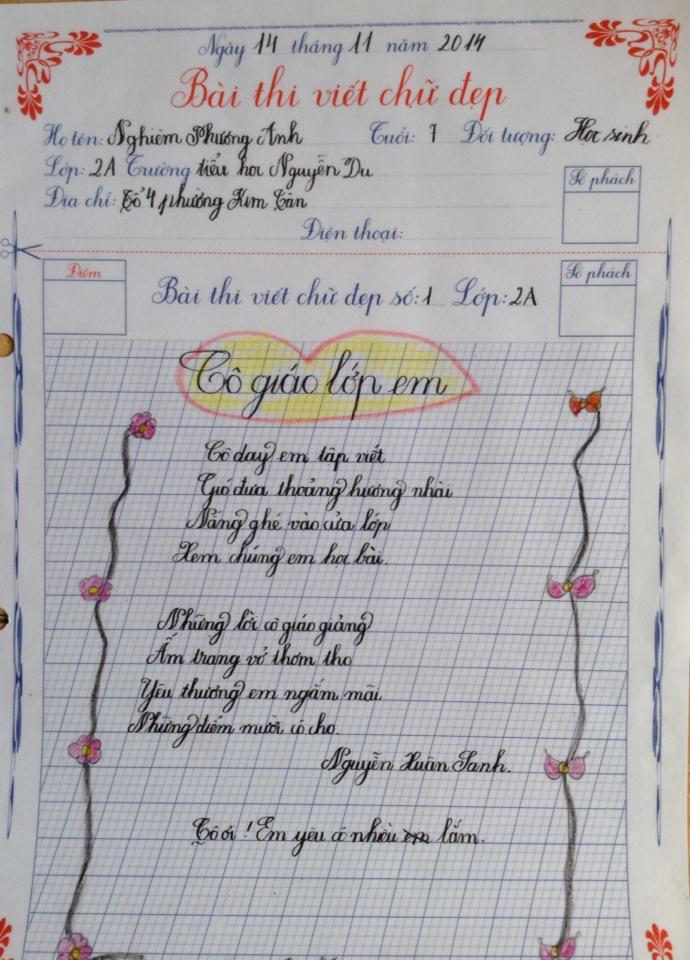 Ngày 14 tháng 11 năm 2014
Bài thi viết chữ đẹp
Họ tên: Nghiêm Phương Anh Tuổi: 7 Đối tượng: Học sinh
Lớp: 2A Trường tiểu học Nguyễn Du
Địa chỉ: Tổ 4 phường Kim Tân
Số phách
Điện thoại:
Điểm
Bài thi viết chữ đẹp số: 1 Lớp: 2A
Số phách
Cô giáo lớp em
Cô dạy em tập viết
Gió đưa thoảng hương nhài
Nắng ghé vào cửa lớp
Xem chúng em học bài.
Những lời cô giáo giảng
Ấm trang vở thơm tho
Yêu thương em ngắm mãi
Những điểm mười cô cho.
Nguyễn Xuân Sanh.
Cô ơi ! Em yêu cô nhiều em lắm.